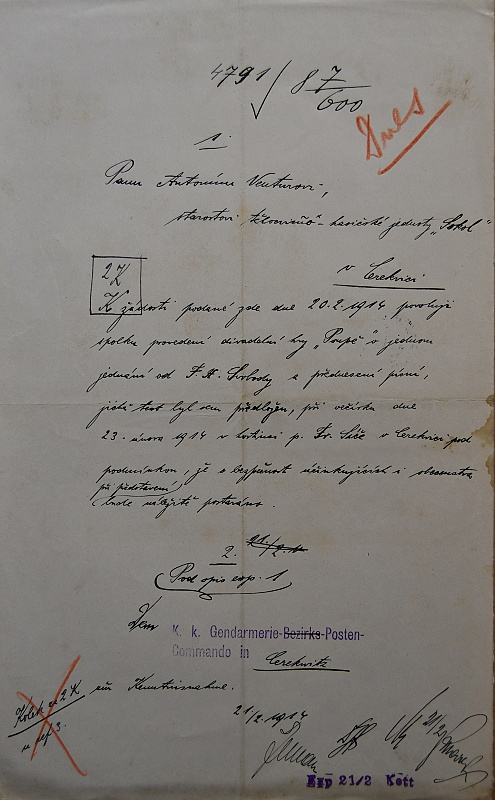 4791/8 7/600
Dnes
1.
Panu Antonínu Venturovi,
starostovi tělocvičně-hasičské jednoty „Sokol“
v Cerekvici
2 K
K žádosti podané zde dne 20.2.1914 povoluji
spolku provedení divadelní hry „Poupě“ v jednom
jednání od F. X. Svobody a přednesení písní,
jichž text byl sem předložen, při večírku dne
23. února 1914 v hostinci p. Fr. v Cerekvici pod
podmínkou, že o bezpečnost účinkujících i obecenstva
při představení
bude náležitě postaráno.
2. 21/2.14
Pod opis exp. 1
Dem K. k. Gendarmerie-Bezirks-Posten-
Commando in Cerekwitz
zur Kenntnisnahme.
Kolek 2 K
u ref 3.
21/2.1914
21/2
Exp 21/2 Kött